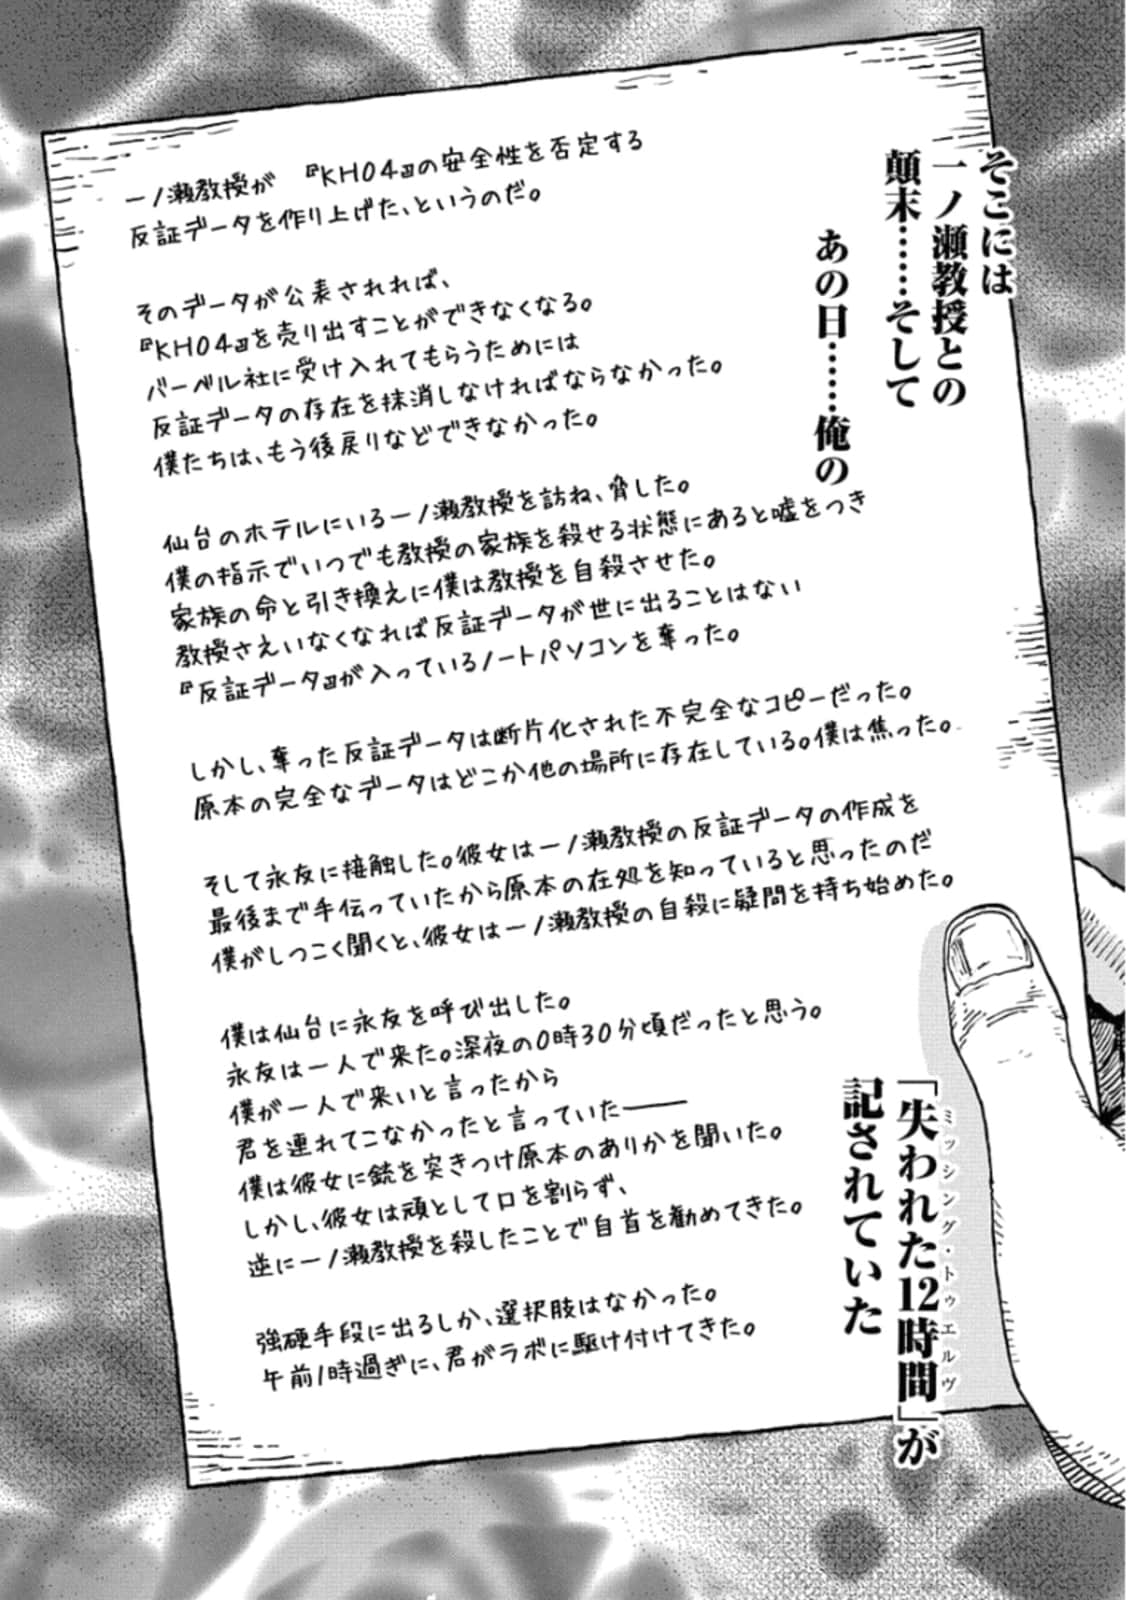 そこには
一ノ瀬教授との
顛末……そして
あの日……俺の
一ノ瀬教授が　『KH04』の安全性を否定する
反証データを作り上げた、というのだ。
そのデータが公表されれば、
『KH04』を売り出すことができなくなる。
バーベル社に受け入れてもらうためには
反証データの存在を抹消しなければならなかった。
僕たちは、もう後戻りなどできなかった。
仙台のホテルにいる一ノ瀬教授を訪ね、脅した。
僕の指示でいつでも教授の家族を殺せる状態にあると嘘をつき
家族の命と引き換えに僕は教授を自殺させた。
教授さえいなくなれば反証データが世に出ることはない
『反証データ』が入っているノートパソコンを奪った。
しかし、奪った反証データは断片化された不完全なコピーだった。
原本の完全なデータはどこか他の場所に存在している。僕は焦った。
そして永友に接触した。彼女は一ノ瀬教授の反証データの作成を
最後まで手伝っていたから原本の在処を知っていると思ったのだ
僕がしつこく聞くと、彼女は一ノ瀬教授の自殺に疑問を持ち始めた。
僕は仙台に永友を呼び出した。
永友は一人で来た。深夜の0時30分頃だったと思う。
僕が一人で来いと言ったから
君を連れてこなかったと言っていた――
僕は彼女に銃を突きつけ原本のありかを聞いた。
しかし、彼女は頑として口を割らず、
逆に一ノ瀬教授を殺したことで自首を勧めてきた。
強硬手段に出るしか、選択肢はなかった。
午前1時過ぎに、君がラボに駆け付けてきた。
「失われた12時間」が
ミッシング・トゥエルヴ
記されていた